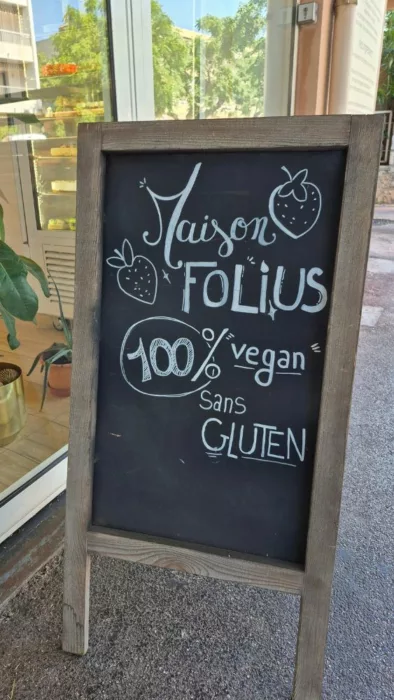 Maison
FOLiUS
100% "vegan"
Sans
GLUTEN